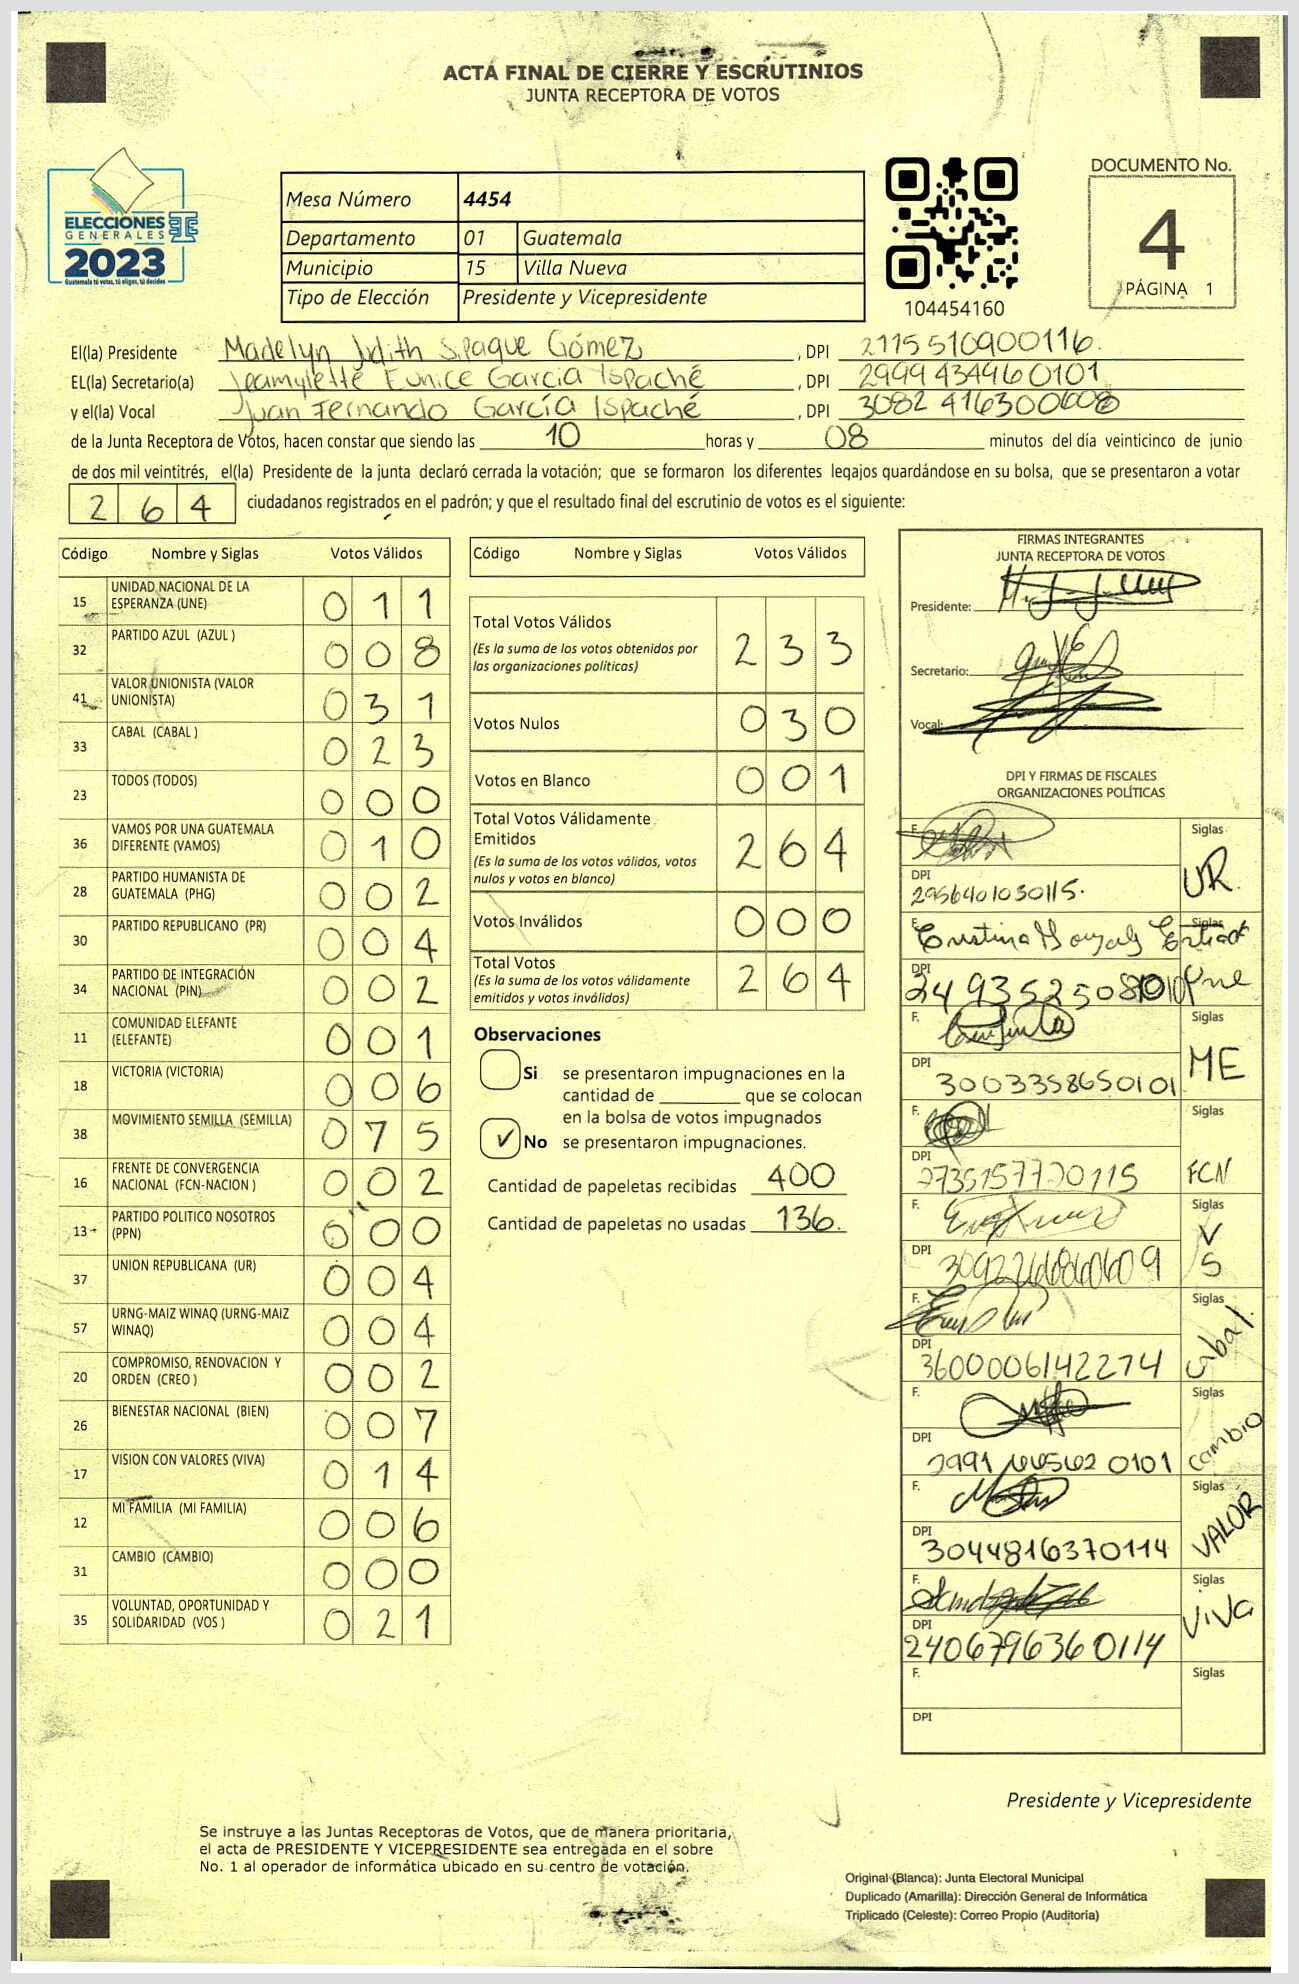 ACTA FINAL DE CIERRE Y ESCRUTINIOS
JUNTA RECEPTORA DE VOTOS
ELECCIONES
GENERALES
2023
Guatemala tú votas, tú eliges, tú decides
Mesa Número 4454
Departamento 01 Guatemala
Municipio 15 Villa Nueva
Tipo de Elección Presidente y Vicepresidente
104454160
DOCUMENTO No.
4
PÁGINA 1
El(la) Presidente Madelyn Judith Sipaque Gómez , DPI 2115510900116.
EL(la) Secretario(a) Jeamylette Eunice Garcia Ispaché , DPI 2999434960101
y el(la) Vocal Juan Fernando García Ispaché , DPI 3082416300608
de la Junta Receptora de Votos, hacen constar que siendo las 10 horas y 08 minutos del día veinticinco de junio
de dos mil veintitrés, el(la) Presidente de la junta declaró cerrada la votación; que se formaron los diferentes legajos guardándose en su bolsa, que se presentaron a votar
264 ciudadanos registrados en el padrón; y que el resultado final del escrutinio de votos es el siguiente:
Código Nombre y Siglas Votos Válidos
15 UNIDAD NACIONAL DE LA ESPERANZA (UNE) 011
32 PARTIDO AZUL (AZUL ) 008
41 VALOR UNIONISTA (VALOR UNIONISTA) 031
33 CABAL (CABAL ) 023
23 TODOS (TODOS) 000
36 VAMOS POR UNA GUATEMALA DIFERENTE (VAMOS) 010
28 PARTIDO HUMANISTA DE GUATEMALA (PHG) 002
30 PARTIDO REPUBLICANO (PR) 004
34 PARTIDO DE INTEGRACIÓN NACIONAL (PIN) 002
11 COMUNIDAD ELEFANTE (ELEFANTE) 001
18 VICTORIA (VICTORIA) 006
38 MOVIMIENTO SEMILLA (SEMILLA) 075
16 FRENTE DE CONVERGENCIA NACIONAL (FCN-NACION ) 002
13 PARTIDO POLITICO NOSOTROS (PPN) 000
37 UNION REPUBLICANA (UR) 004
57 URNG-MAIZ WINAQ (URNG-MAIZ WINAQ) 004
20 COMPROMISO, RENOVACION Y ORDEN (CREO ) 002
26 BIENESTAR NACIONAL (BIEN) 007
17 VISION CON VALORES (VIVA) 014
12 MI FAMILIA (MI FAMILIA) 006
31 CAMBIO (CAMBIO) 000
35 VOLUNTAD, OPORTUNIDAD Y SOLIDARIDAD (VOS ) 021
Código Nombre y Siglas Votos Válidos
Total Votos Válidos 233
(Es la suma de los votos obtenidos por
las organizaciones políticas)
Votos Nulos 030
Votos en Blanco 001
Total Votos Válidamente Emitidos 264
(Es la suma de los votos válidos, votos
nulos y votos en blanco)
Votos Inválidos 000
Total Votos 264
(Es la suma de los votos válidamente
emitidos y votos inválidos)
Observaciones
Si se presentaron impugnaciones en la
cantidad de ________ que se colocan
en la bolsa de votos impugnados
✓ No se presentaron impugnaciones.
Cantidad de papeletas recibidas 400
Cantidad de papeletas no usadas 136.
FIRMAS INTEGRANTES
JUNTA RECEPTORA DE VOTOS
Presidente:
Secretario:
Vocal:
DPI Y FIRMAS DE FISCALES
ORGANIZACIONES POLÍTICAS
F. Siglas UR.
DPI 2956401030115.
F. Cristina Siglas Une
DPI
F. Siglas ME
DPI 3003358650101
F. Siglas FCN
DPI 2735157720115
F. Siglas VS
DPI
F. Siglas Cabal.
DPI 3600006142274
F. Siglas Cambio
DPI
F. Siglas VALOR
DPI 3044816370114
F. Siglas VIVA
DPI 2406796360114
F. Siglas
DPI
Presidente y Vicepresidente
Se instruye a las Juntas Receptoras de Votos, que de manera prioritaria,
el acta de PRESIDENTE Y VICEPRESIDENTE sea entregada en el sobre
No. 1 al operador de informática ubicado en su centro de votación.
Original (Blanca): Junta Electoral Municipal
Duplicado (Amarilla): Dirección General de Informática
Triplicado (Celeste): Correo Propio (Auditoría)